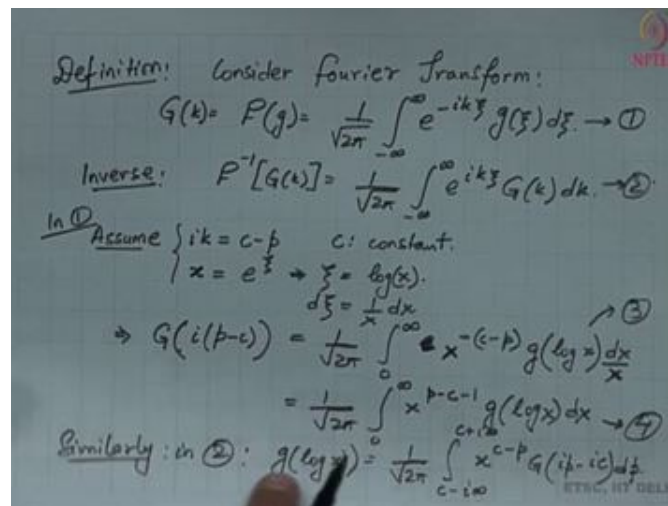 NPTEL
Definition: Consider Fourier Transform:
G(k) = F(g) = 1/√2π ∫_{-∞}^{∞} e^{-ikξ} g(ξ) dξ. → ①
Inverse: F^{-1}[G(k)] = 1/√2π ∫_{-∞}^{∞} e^{ikξ} G(k) dk. → ②
In ①
Assume { ik = c-p   c: constant.
x = e^ξ → ξ = log(x).
dξ = 1/x dx
⇒ G(i(p-c)) = 1/√2π ∫_0^∞ x^{-(c-p)} g(log x) dx/x → ③
= 1/√2π ∫_0^∞ x^{p-c-1} g(log x) dx → ④
Similarly: in ②: g(log x) = 1/√2π ∫_{c-i∞}^{c+i∞} x^{c-p} G(ip-ic) dp.
ETSC, IIT DELHI